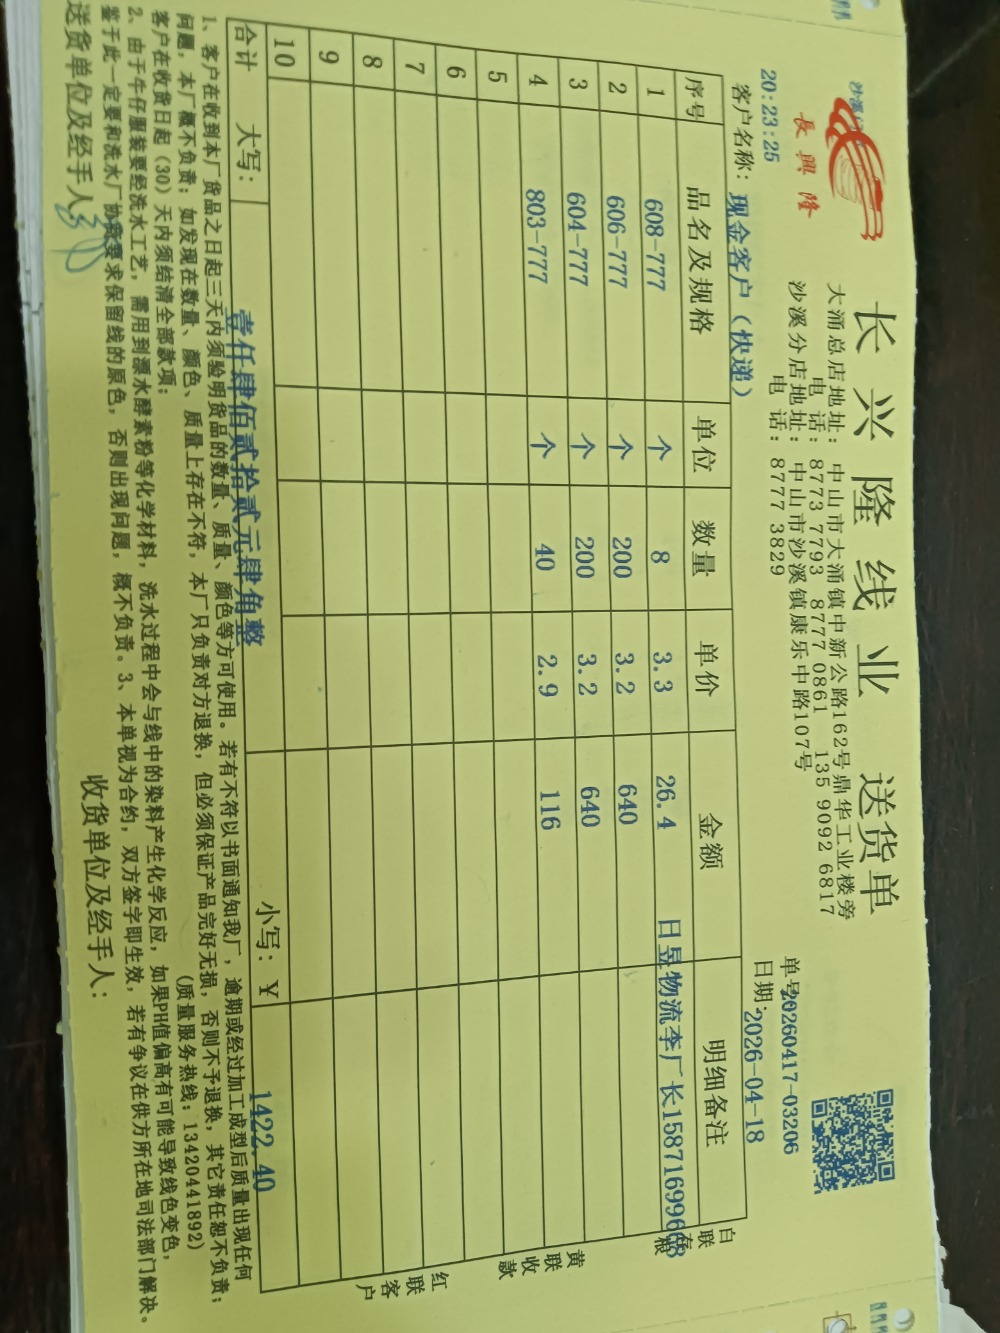 長興隆
长兴隆线业 送货单
大涌总店地址：中山市大涌镇中新公路162号鼎华工业楼旁
电 话：8773 7793 8777 0861 135 9092 6817
沙溪分店地址：中山市沙溪镇康乐中路107号
电 话：8777 3829
单号:20260417-03206
20:23:25
日期:2026-04-18
客户名称：现金客户（快递）
序号 品名及规格 单位 数量 单价 金额 明细备注
1 608-777 个 8 3.3 26.4 日昱物流李厂长
2 606-777 个 200 3.2 640
3 604-777 个 200 3.2 640
4 803-777 个 40 2.9 116
5
6
7
8
9
10
合计 大写：壹仟肆佰贰拾贰元肆角整 小写：¥ 1422.40
白联存根
黄联收款
红联客户
1、客户在收到本厂货品之日起三天内须验明货品的数量、质量、颜色等方可使用。若有不符以书面通知我厂，逾期或经过加工成型后质量出现任何
问题，本厂概不负责；如发现在数量、颜色、质量上存在不符，本厂只负责对方退换，但必须保证产品完好无损，否则不予退换，其它责任恕不负责；
客户在收货日起（30）天内须结清全部款项； （质量服务热线：13420441892）
2、由于牛仔服装要经洗水工艺，需用到漂水酵素粉等化学材料，洗水过程中会与线中的染料产生化学反应，如果PH值偏高有可能导致线色变色，
鉴于此一定要和洗水厂协商要求保留线的原色，否则出现问题，概不负责。3、本单视为合约，双方签字即生效，若有争议在供方所在地司法部门解决。
送货单位及经手人： 收货单位及经手人：